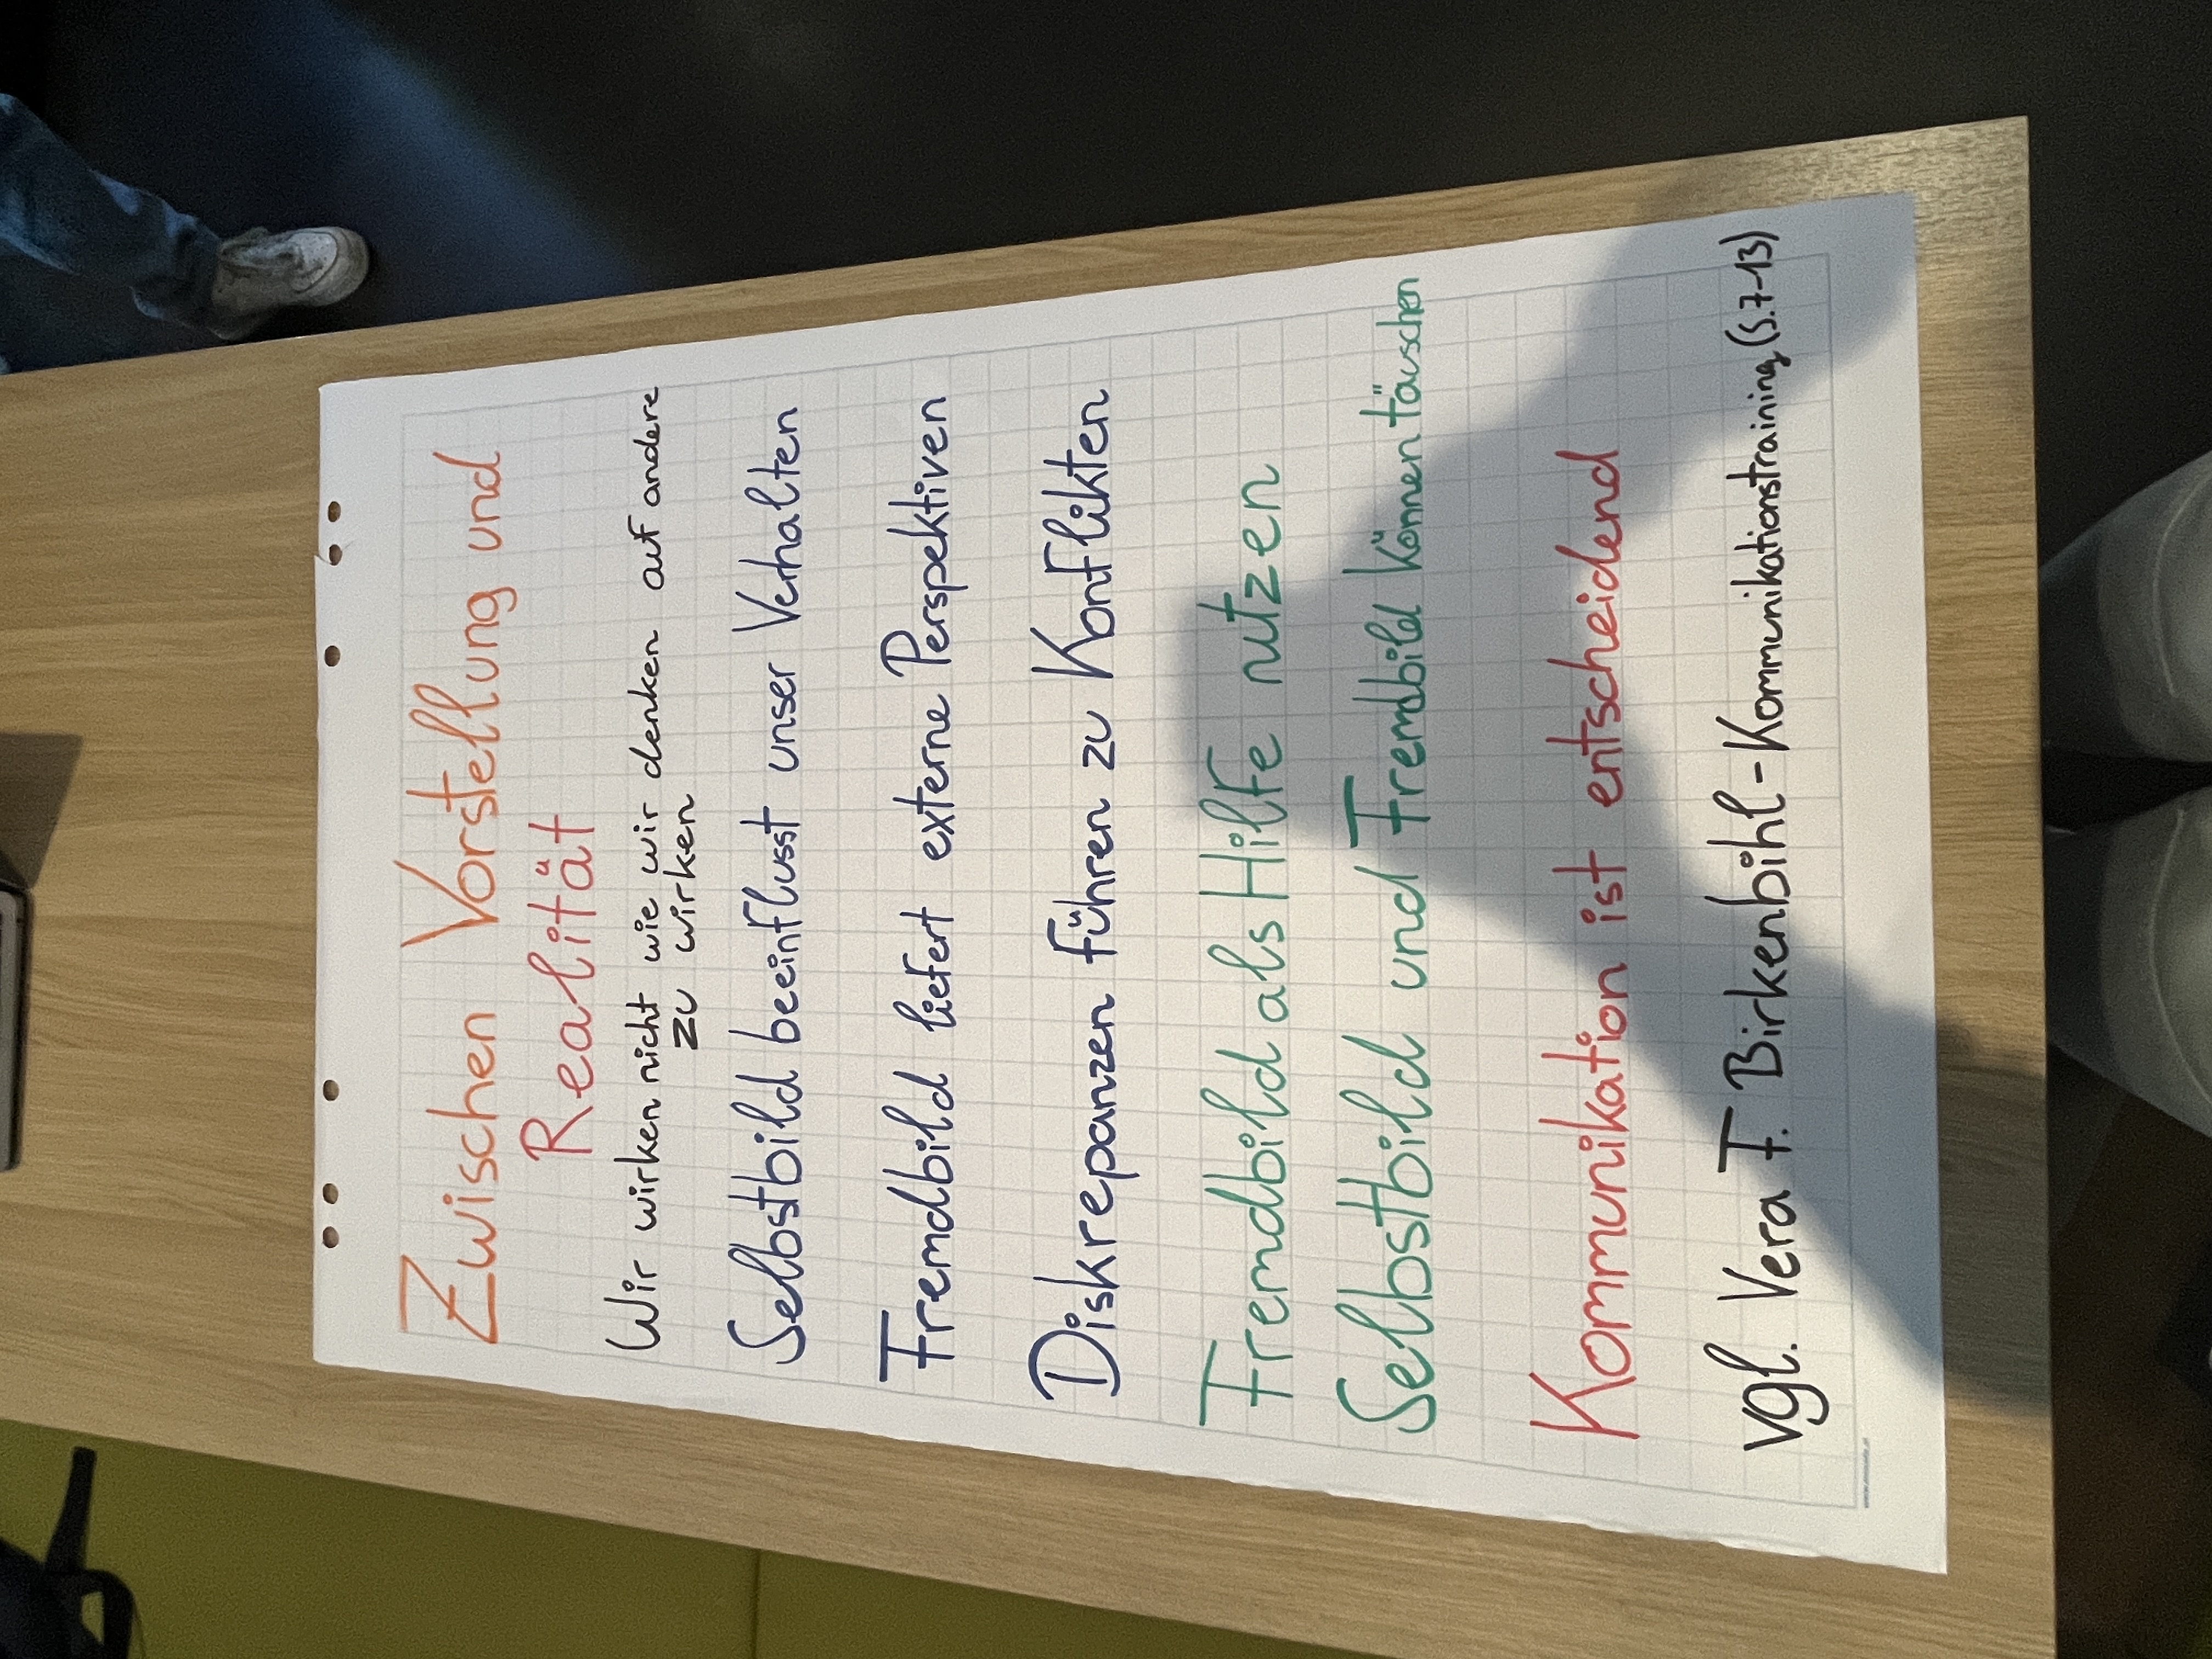 Zwischen Vorstellung und
Realität
Wir wirken nicht wie wir denken auf andere
zu wirken
Selbstbild beeinflusst unser Verhalten
Fremdbild liefert externe Perspektiven
Diskrepanzen führen zu Konflikten
Fremdbild als Hilfe nutzen
Selbstbild und Fremdbild können täuschen
Kommunikation ist entscheidend
vgl. Vera F. Birkenbihl - Kommunikationstraining (S.7-13)